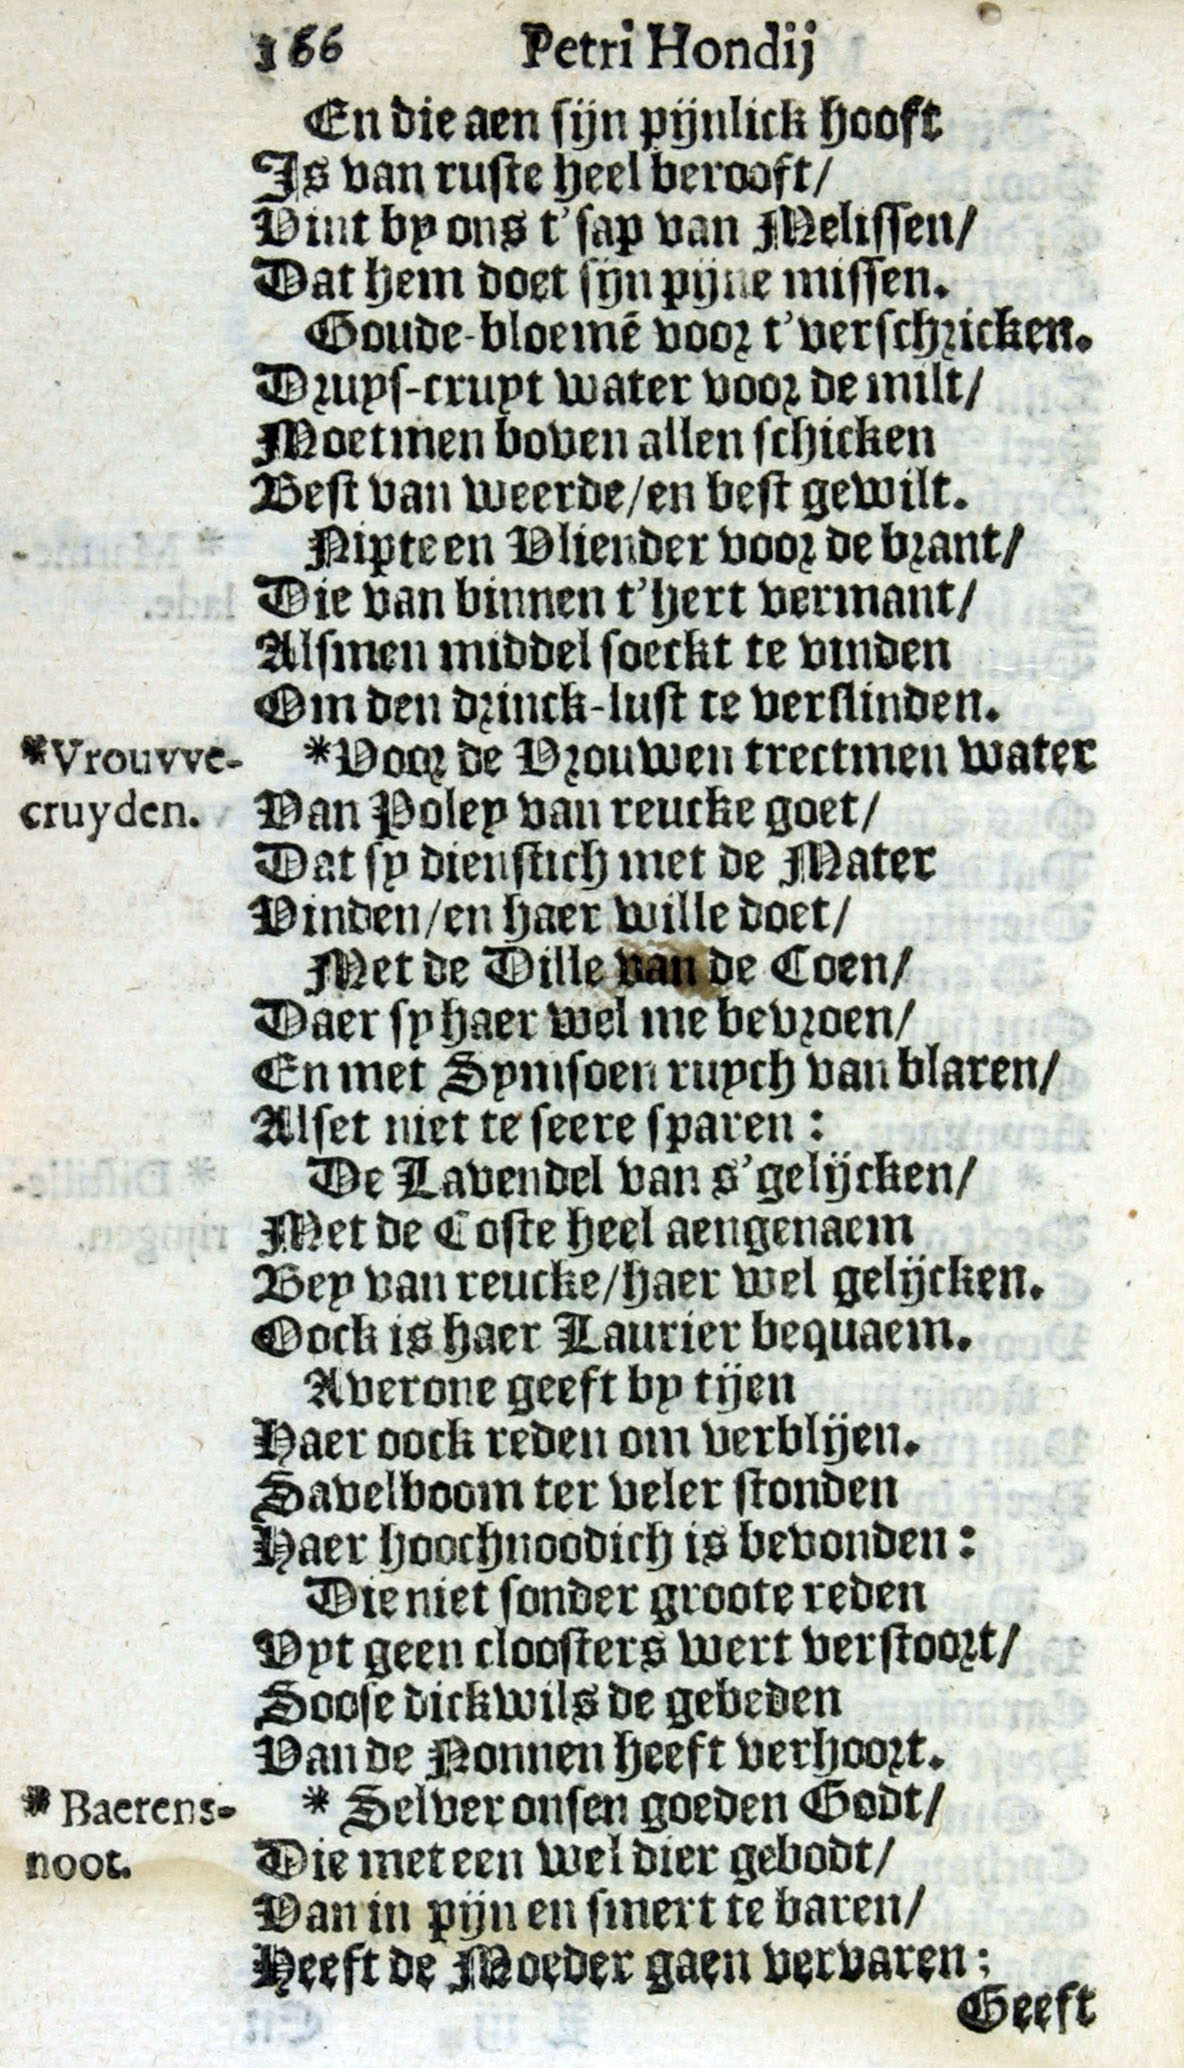 166 Petri Hondij
En die aen sijn pijnlick hooft
Is van ruste heel berooft/
Vint by ons t'sap van Melissen/
Dat hem doet sijn pijne missen.
Goude-bloemē voor t'verschricken.
Druys-cruyt water voor de milt/
Moetmen boven allen schicken
Best van weerde/en best gewilt.
Nipte en Vliender voor de brant/
Die van binnen t'hert vermant/
Alsmen middel soeckt te vinden
Om den drinck-lust te verslinden.
*Vrouvve-
cruyden.
*Voor de Vrouwen trectmen water
Van Poley van reucke goet/
Dat sy dienstich met de Mater
Vinden/en haer wille doet/
Met de Dille van de Coen/
Daer sy haer wel me bevroen/
En met Symsoen ruych van blaren/
Alset niet te seere sparen:
De Lavendel van s'gelijcken/
Met de Coste heel aengenaem
Bey van reucke/haer wel gelijcken.
Oock is haer Laurier bequaem.
Averone geeft by tijen
Haer oock reden om verblijen.
Savelboom ter veler stonden
Haer hoochnoodich is bevonden:
Die niet sonder groote reden
Vyt geen cloosters wert verstoort/
Soose dickwils de gebeden
Van de Nonnen heeft verhoort.
* Baerens-
noot.
* Selver onsen goeden Godt/
Die met een wel dier gebodt/
Van in pijn en smert te baren/
Heeft de Moeder gaen vervaren:
Geeft